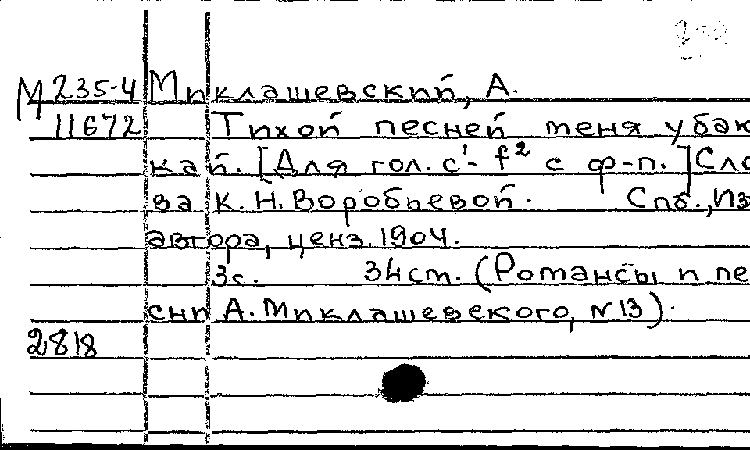 М 235-4 Миклашевский, А.
11672 Тихой песней меня убаю
кай. [Для гол. c¹- f² с ф-п.] Сло
ва К. Н. Воробьевой. Спб., Из
автора, ценз. 1904.
3с. 34см. (Романсы и пе
сни А. Миклашевского, N 13).
2818